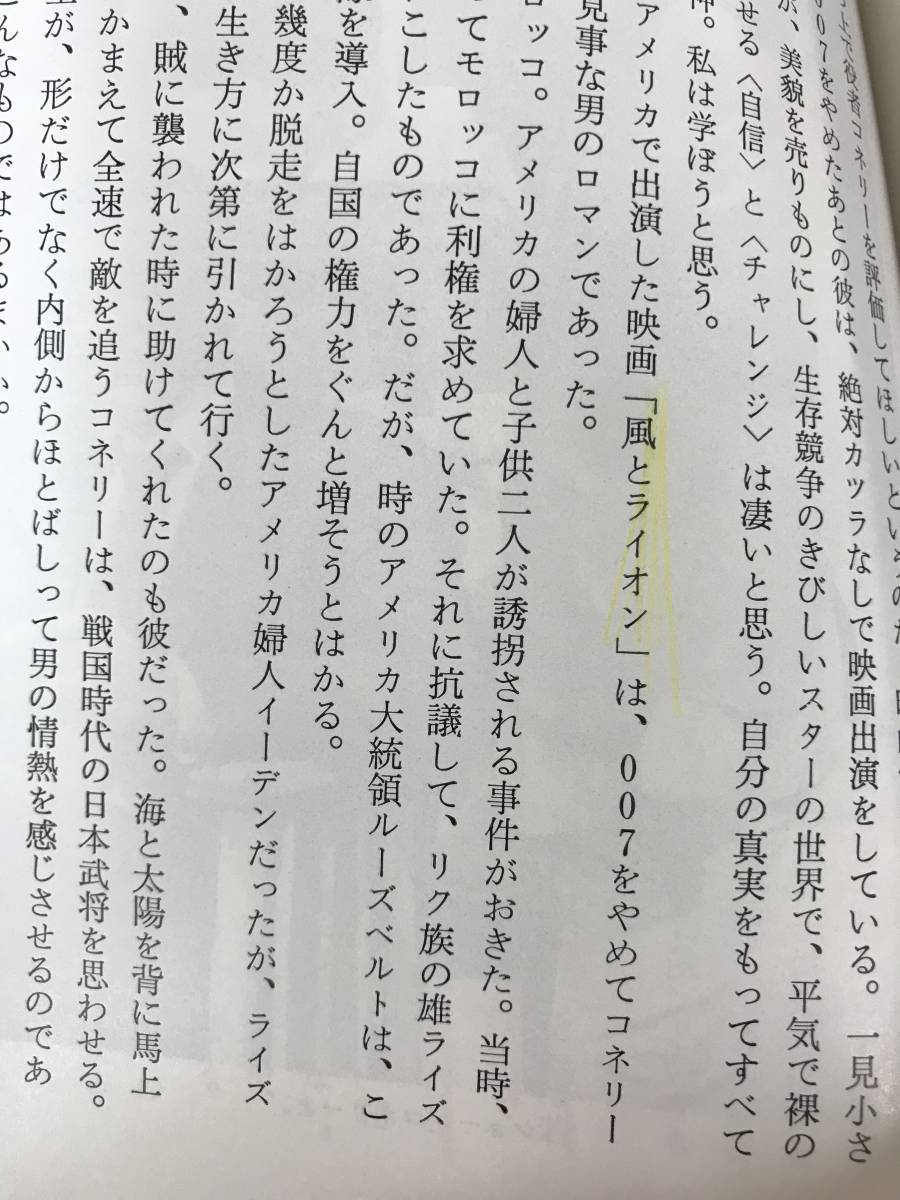 評価してほしいという
007をやめたあとの彼は、絶対カツラなしで映画出演をしている。一見小さ
が、美貌を売りものにし、生存競争のきびしいスターの世界で、平気で裸の
せる〈自信〉と〈チャレンジ〉は凄いと思う。自分の真実をもってすべて
神。私は学ぼうと思う。
アメリカで出演した映画「風とライオン」は、007をやめてコネリー
見事な男のロマンであった。
ロッコ。アメリカの婦人と子供二人が誘拐される事件がおきた。当時、
てモロッコに利権を求めていた。それに抗議して、リク族の雄ライズ
こしたものであった。だが、時のアメリカ大統領ルーズベルトは、こ
を導入。自国の権力をぐんと増そうとはかる。
幾度か脱走をはかろうとしたアメリカ婦人イーデンだったが、ライズ
生き方に次第に引かれて行く。
、賊に襲われた時に助けてくれたのも彼だった。海と太陽を背に馬上
かまえて全速で敵を追うコネリーは、戦国時代の日本武将を思わせる。
が、形だけでなく内側からほとばしって男の情熱を感じさせるのであ
なものではあるまいか。